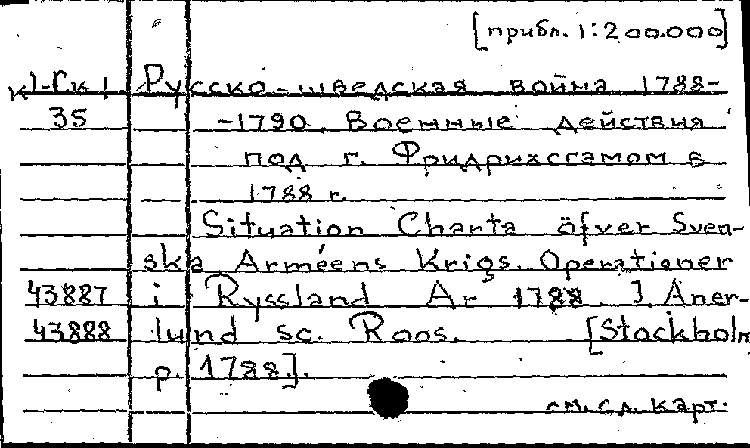 [прибл. 1:200.000]
К1-Гк1 Русско-шведская война 1788-
35 -1790. Военные действия
под г. Фридрихсгамом в
1788 г.
Situation Charta öfver Sven-
ska Arméens Krigs. Operationer
43887 i Ryssland Ar 1788. J. Åner-
43888 lund sc. Roos. [Stockholm
p. 1788].
см. сл. карт.